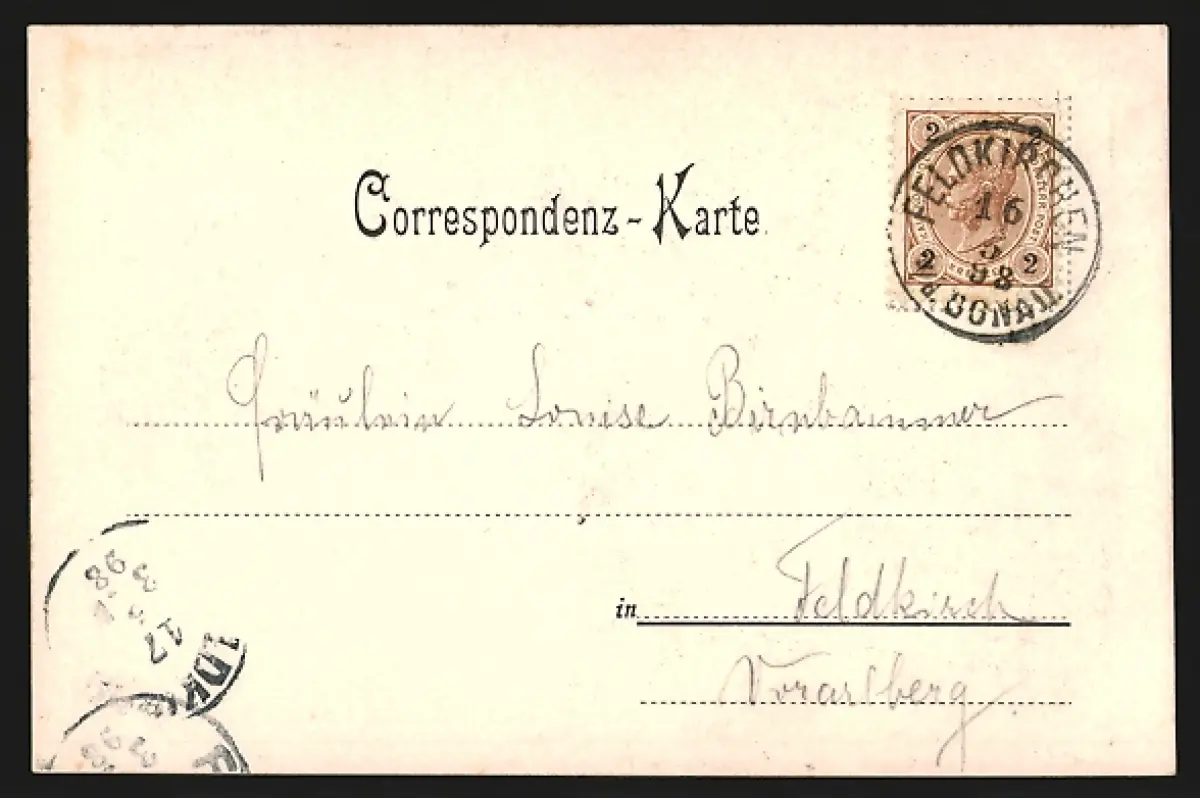 Correspondenz-Karte
2 2
2 2
FELDKIRCHEN
16
98
DONAU
Fräulein Louise Birnbaumer
in Feldkirch
Vorarlberg
98
3
17
LDK